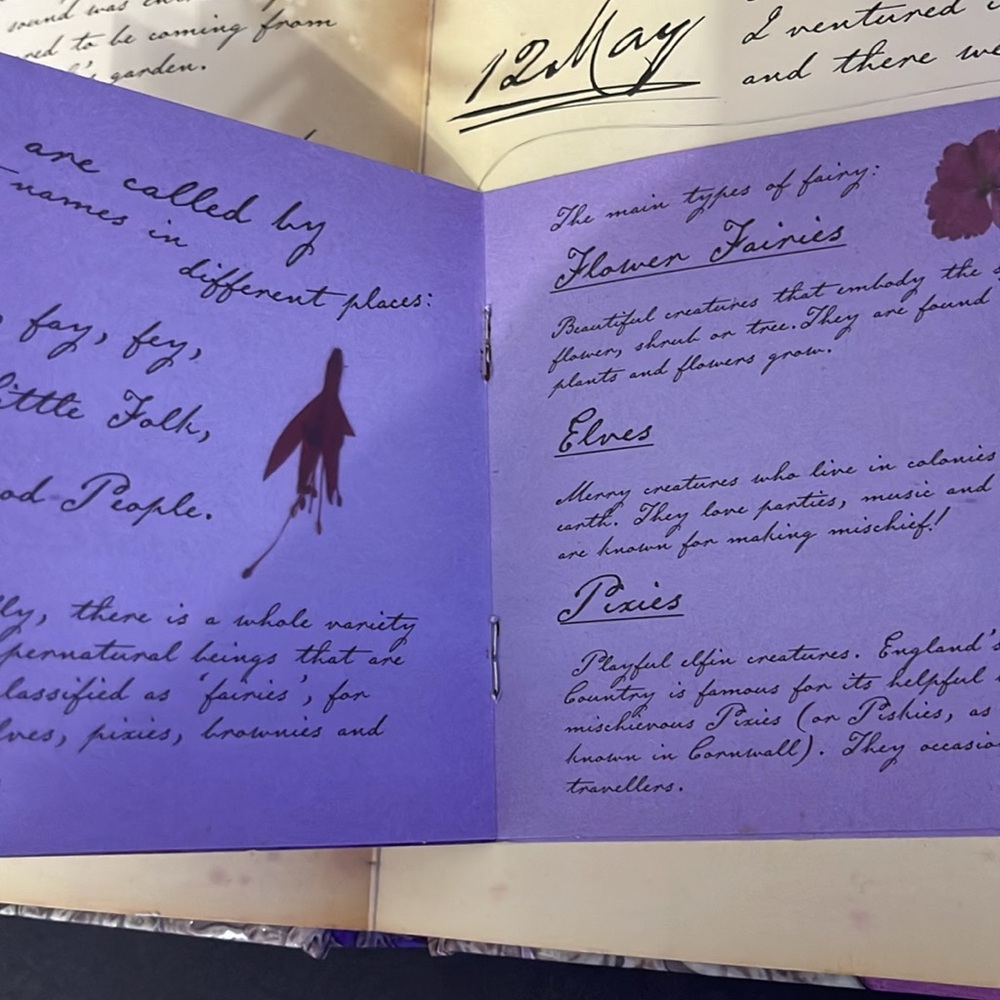 sound was
red to be coming from
garden.
12 May
I ventured
and there we
are called by
names in
different places:
fay, fey,
ittle Folk,
od People.
lly, there is a whole variety
pernatural beings that are
lassified as 'fairies', for
lves, pixies, brownies and
The main types of fairy:
Flower Fairies
Beautiful creatures that embody the s
flower, shrub or tree. They are found
plants and flowers grow.
Elves
Merry creatures who live in colonies
earth. They love parties, music and
are known for making mischief!
Pixies
Playful elfin creatures. England's
Country is famous for its helpful
mischievous Pixies (or Piskies, as
known in Cornwall). They occasio
travellers.